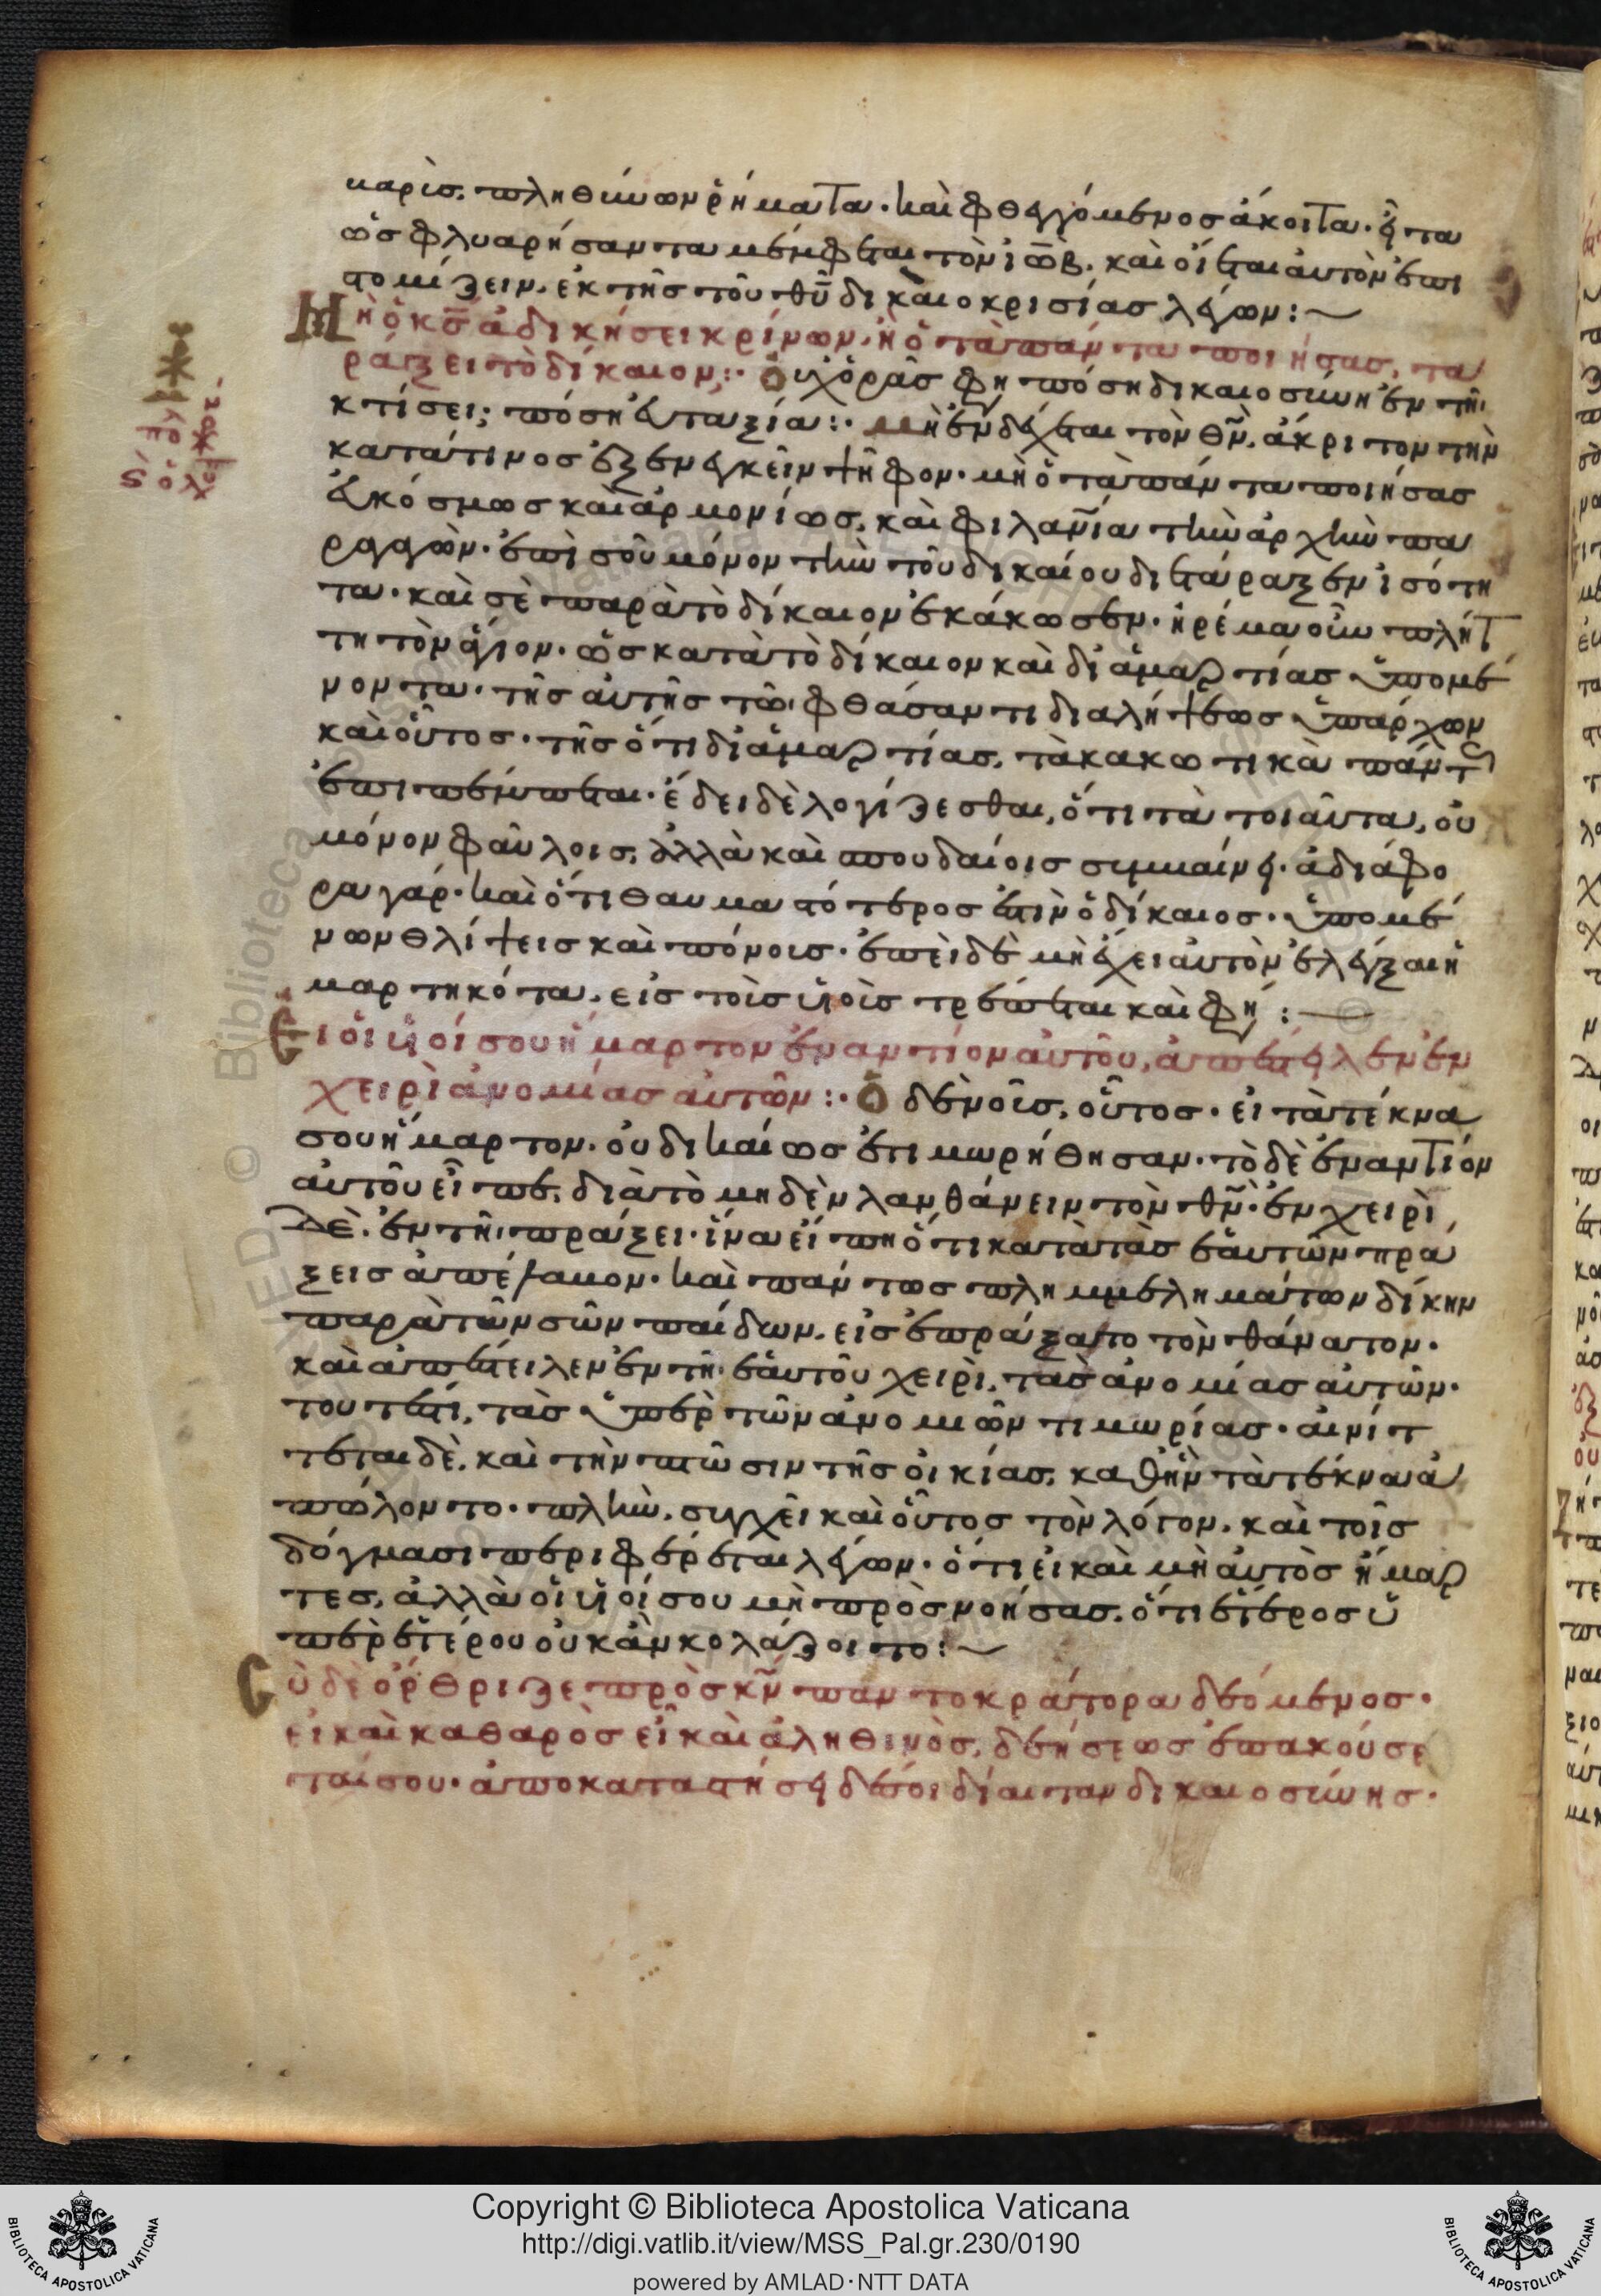 μαρὶς, πληθύνων ῥήματα· καὶ φθεγγόμενος ἄκοιτα· εἶτα
ὡς φλυαρήσαντα μέμφεται τὸν ἰὼβ. καὶ οἴεται αὐτὸν ἐπι
στομίζειν. ἐκ τῆς τοῦ θῦ δικαιοκρισίας λέγων:~
Μὴ ὁ κς ἀδικήσει κρίνων. ἢ ὁ τὰ πάντα ποιήσας, τα
ράξει τὸ δίκαιον:· Οὐχ ὁρᾶς φη πόση δικαιοσύνη ἐν τῆι
κτίσει; πόση εὐταξία:· μὴ ἐνδέχεται τὸν θν, ἄκριτον τὴν
κατά τινος ἐξενεγκεῖν ψῆφον· μὴ ὁ τὰ πάντα ποιήσας
εὐκόσμως καὶ ἁρμονίως. καὶ φιλανία τὴν ἀρχὴν πα
ραγαγὼν· ἐπὶ σοῦ μόνον τὴν τοῦ δικαίου διετάραξεν ἰσότη
τα· καὶ σὲ παρὰ τὸ δίκαιον ἐκάκωσεν· ἠρέμα οὖν πλήτ
τη τὸν ἅγιον· ὡς κατὰ τὸ δίκαιον καὶ δι ἁμαρτίας ὑπομέ
νοντα· τῆς αὐτῆς τῶι φθάσαντι διαλήψεως ὑπάρχων
καὶ οὗτος· τῆς ὅτι δι ἁμαρτίας, τὰ κακωτικὰ πάντ
ἐπιπέμπεται· ἔδει δὲ λογίζεσθαι, ὅτι τὰ τοιαῦτα, οὐ
μόνον φαύλοις, ἀλλὰ καὶ σπουδαίοις συμβαίνει· ἀδιάφο
ρα γάρ· καὶ ὅτι θαυμαστότερος ἐστὶν ὁ δίκαιος· ὑπομέ
νων θλίψεις καὶ πόνοις· ἐπεὶ δὲ μὴ ἔχει αὐτὸν ἐλέγξαι ἡ
μαρτηκότα. εἰς τοὺς υἱοὺς τρέπεται καὶ φη:—
Εἰ οἱ υἱοί σου ἥμαρτον ἐναντίον αὐτοῦ, ἀπέστειλεν ἐν
χειρὶ ἀνομίας αὐτῶν:· Ὃ δὲ νοεῖς, οὕτος· εἰ τὰ τέκνα
σου ἥμαρτον· οὐ δικαίως ἐτιμωρήθησαν· τὸ δὲ ἐναντίον
αὐτοῦ εἶπε. διὰ τὸ μηδὲν λανθάνειν τὸν θν· ἐν χειρὶ
δὲ. ἐν τῆι πράξει· ἵνα εἴπη ὅτι κατὰ τὰς ἑαυτῶν πρά
ξεις ἀπέθανον· καὶ πάντως πλημμελημάτων δίκην
παρὰ τῶν σῶν παίδων. εἰσεπράξατο τὸν θάνατον·
καὶ ἀπέστειλεν ἐν τῆι ἑαυτοῦ χειρὶ. τὰς ἀνομίας αὐτῶν·
τουτέστι, τὰς ὑπὲρ τῶν ἀνομιῶν τιμωρίας· αἰνίτ
τεται δὲ. καὶ τὴν πτῶσιν τῆς οἰκίας. καθ ἣν τὰ τέκνα ἀ
πώλοντο· πλὴν. συγχεῖ καὶ οὗτος τὸν λόγον. καὶ τοῖς
δόγμασι περιφέρεται λέγων· ὅτι εἰ καὶ μὴ αὐτὸς ἥμαρ
τες. ἀλλὰ οἱ υἱοί σου μὴ προσνοήσας. ὅτι ἕτερος ὑ
πὲρ ἑτέρου οὐκ ἂν κολάζοιτο:~
Σὺ δὲ ὄρθριζε πρὸς κν παντοκράτορα δεόμενος·
εἰ καὶ καθαρὸς εἶ καὶ ἀληθινὸς, δεήσεως ἐπακούσε
ταί σου· ἀποκαταστήσει δέ σοι δίαιταν δικαιοσύνης·
Copyright © Biblioteca Apostolica Vaticana
http://digi.vatlib.it/view/MSS_Pal.gr.230/0190
powered by AMLAD·NTT DATA
BIBLIOTECA APOSTOLICA VATICANA
BIBLIOTECA APOSTOLICA VATICANA